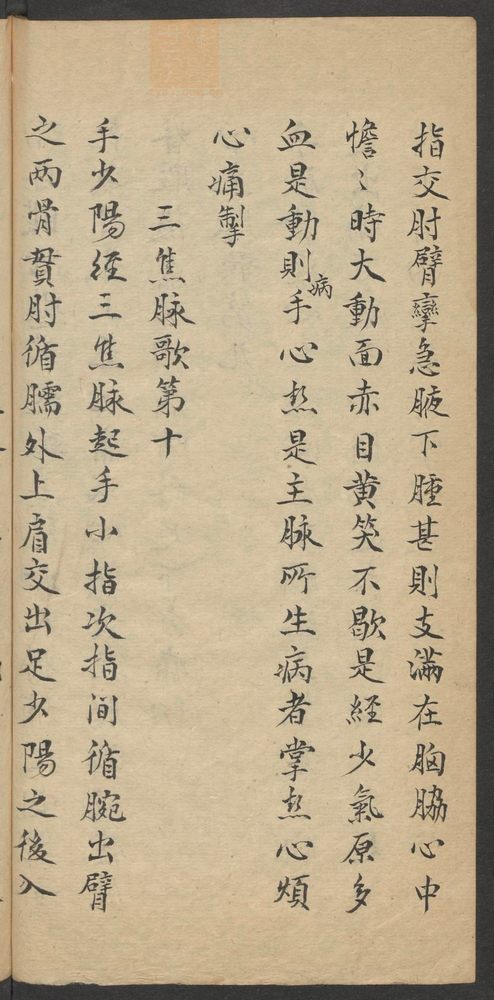 指交肘臂攣急腋下腫甚則支滿在胸脇心中
憺〻時大動面赤目黄笑不歇是経少氣原多
血是動則病手心熱是主脉所生病者掌熱心煩
心痛掣
三焦脉歌第十
手少陽経三焦脉起手小指次指间循腕出臂
之两骨貫肘循臑外上肩交出足少陽之後入